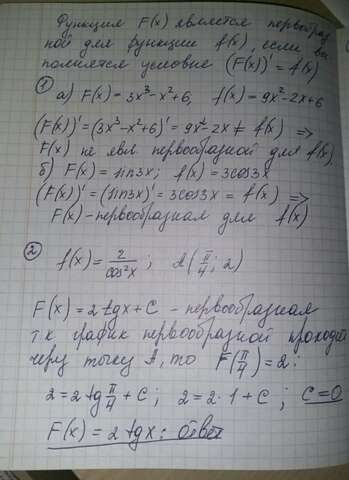 Функция F(x) является первообраз
ной для функции f(x), если вы
полняется условие (F(x))' = f(x)
① а) F(x) = 3x³-x²+6, f(x) = 9x²-2x+6
(F(x))' = (3x³-x²+6)' = 9x²-2x ≠ f(x) =>
F(x) не явл первообразной для f(x),
б) F(x) = sin3x; f(x) = 3cos3x
(F(x))' = (sin3x)' = 3cos3x = f(x) =>
F(x) - первообразная для f(x)
② f(x) = 2/cos²x ; A(π/4; 2)
F(x) = 2tgx + C - первообразная
т к график первообразной проходит
через точку A, то F(π/4) = 2:
2 = 2tg π/4 + C; 2 = 2·1 + C; C = 0
F(x) = 2tgx: ответ